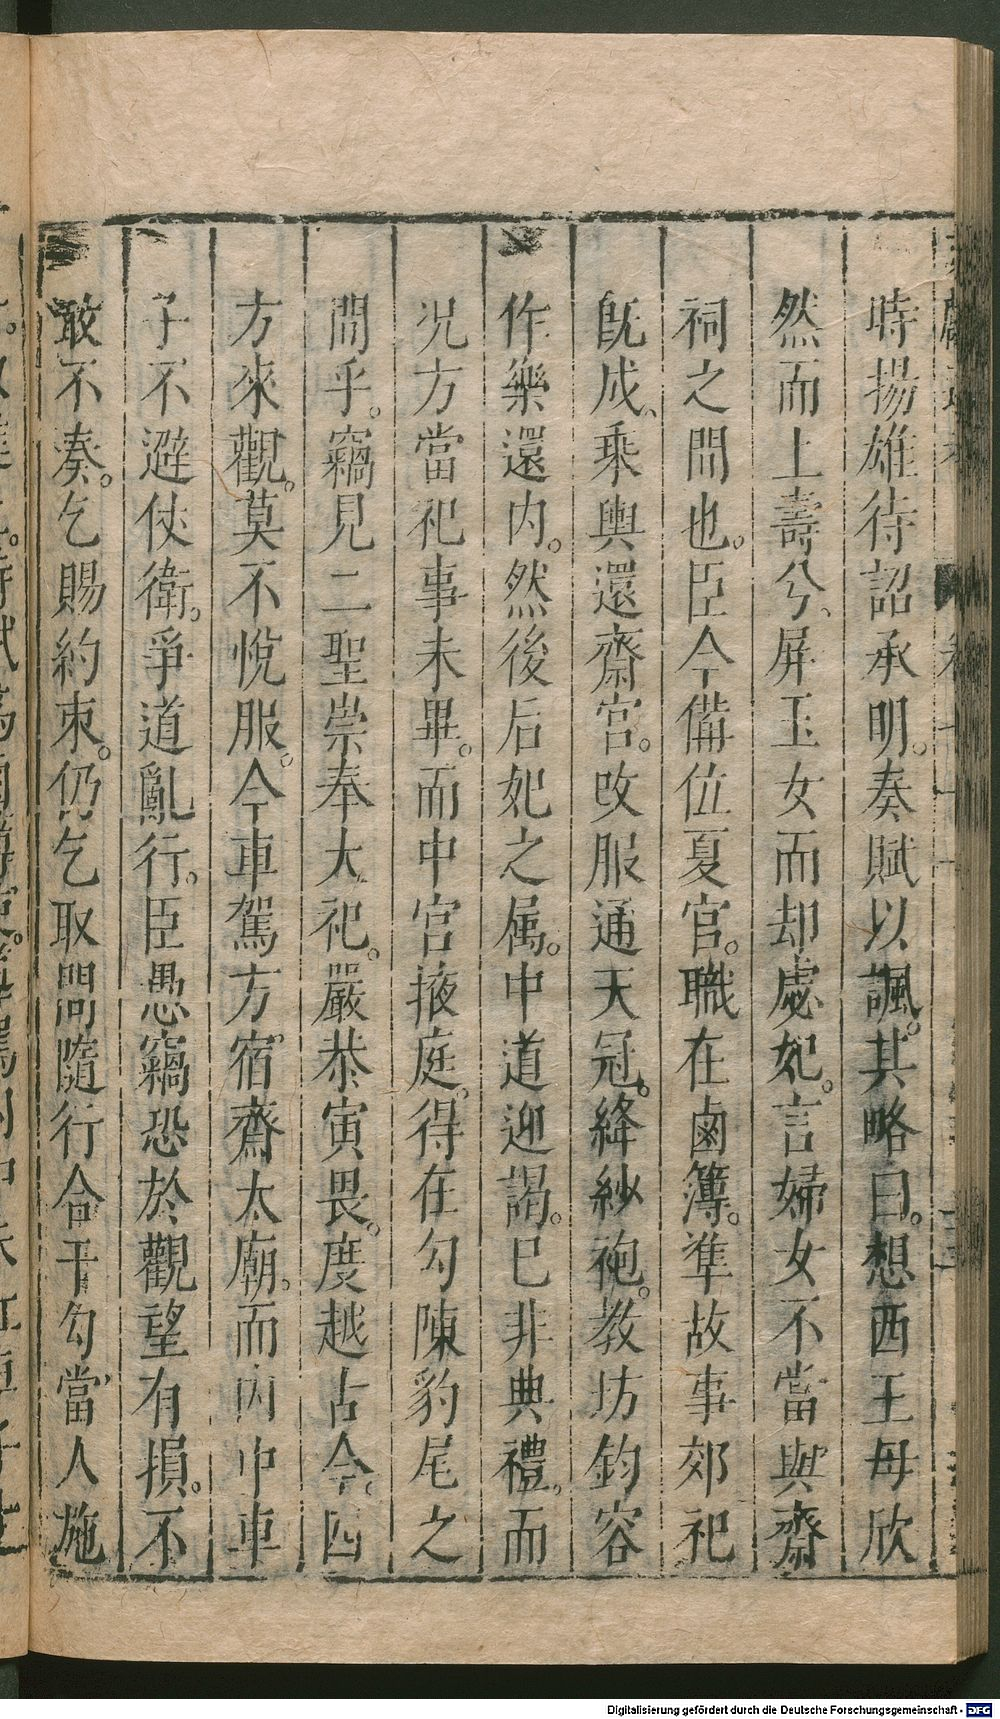 時揚雄待詔承明。奏賦以諷。其略曰。想西王母欣
然而上壽兮、屏玉女而却處妃。言婦女不當與齋
祠之間也。臣今備位夏官。職在鹵簿。準故事郊祀
既成、乗輿還齋宮。改服通天冠。絳紗袍。教坊鈞容
作樂還内。然後后妃之属。中道迎謁。已非典禮。而
况方當祀事未畢。而中宮掖庭。得在勾陳豹尾之
間乎。竊見二聖崇奉大祀。嚴恭寅畏。度越古今。四
方來觀。莫不悅服。今車駕方宿齋太廟。而内中車
子不避仗衛。爭道亂行。臣愚竊恐於觀望有損。不
敢不奏。乞賜約束。仍乞取問隨行合干勾當人施
Digitalisierung gefördert durch die Deutsche Forschungsgemeinschaft - DFG